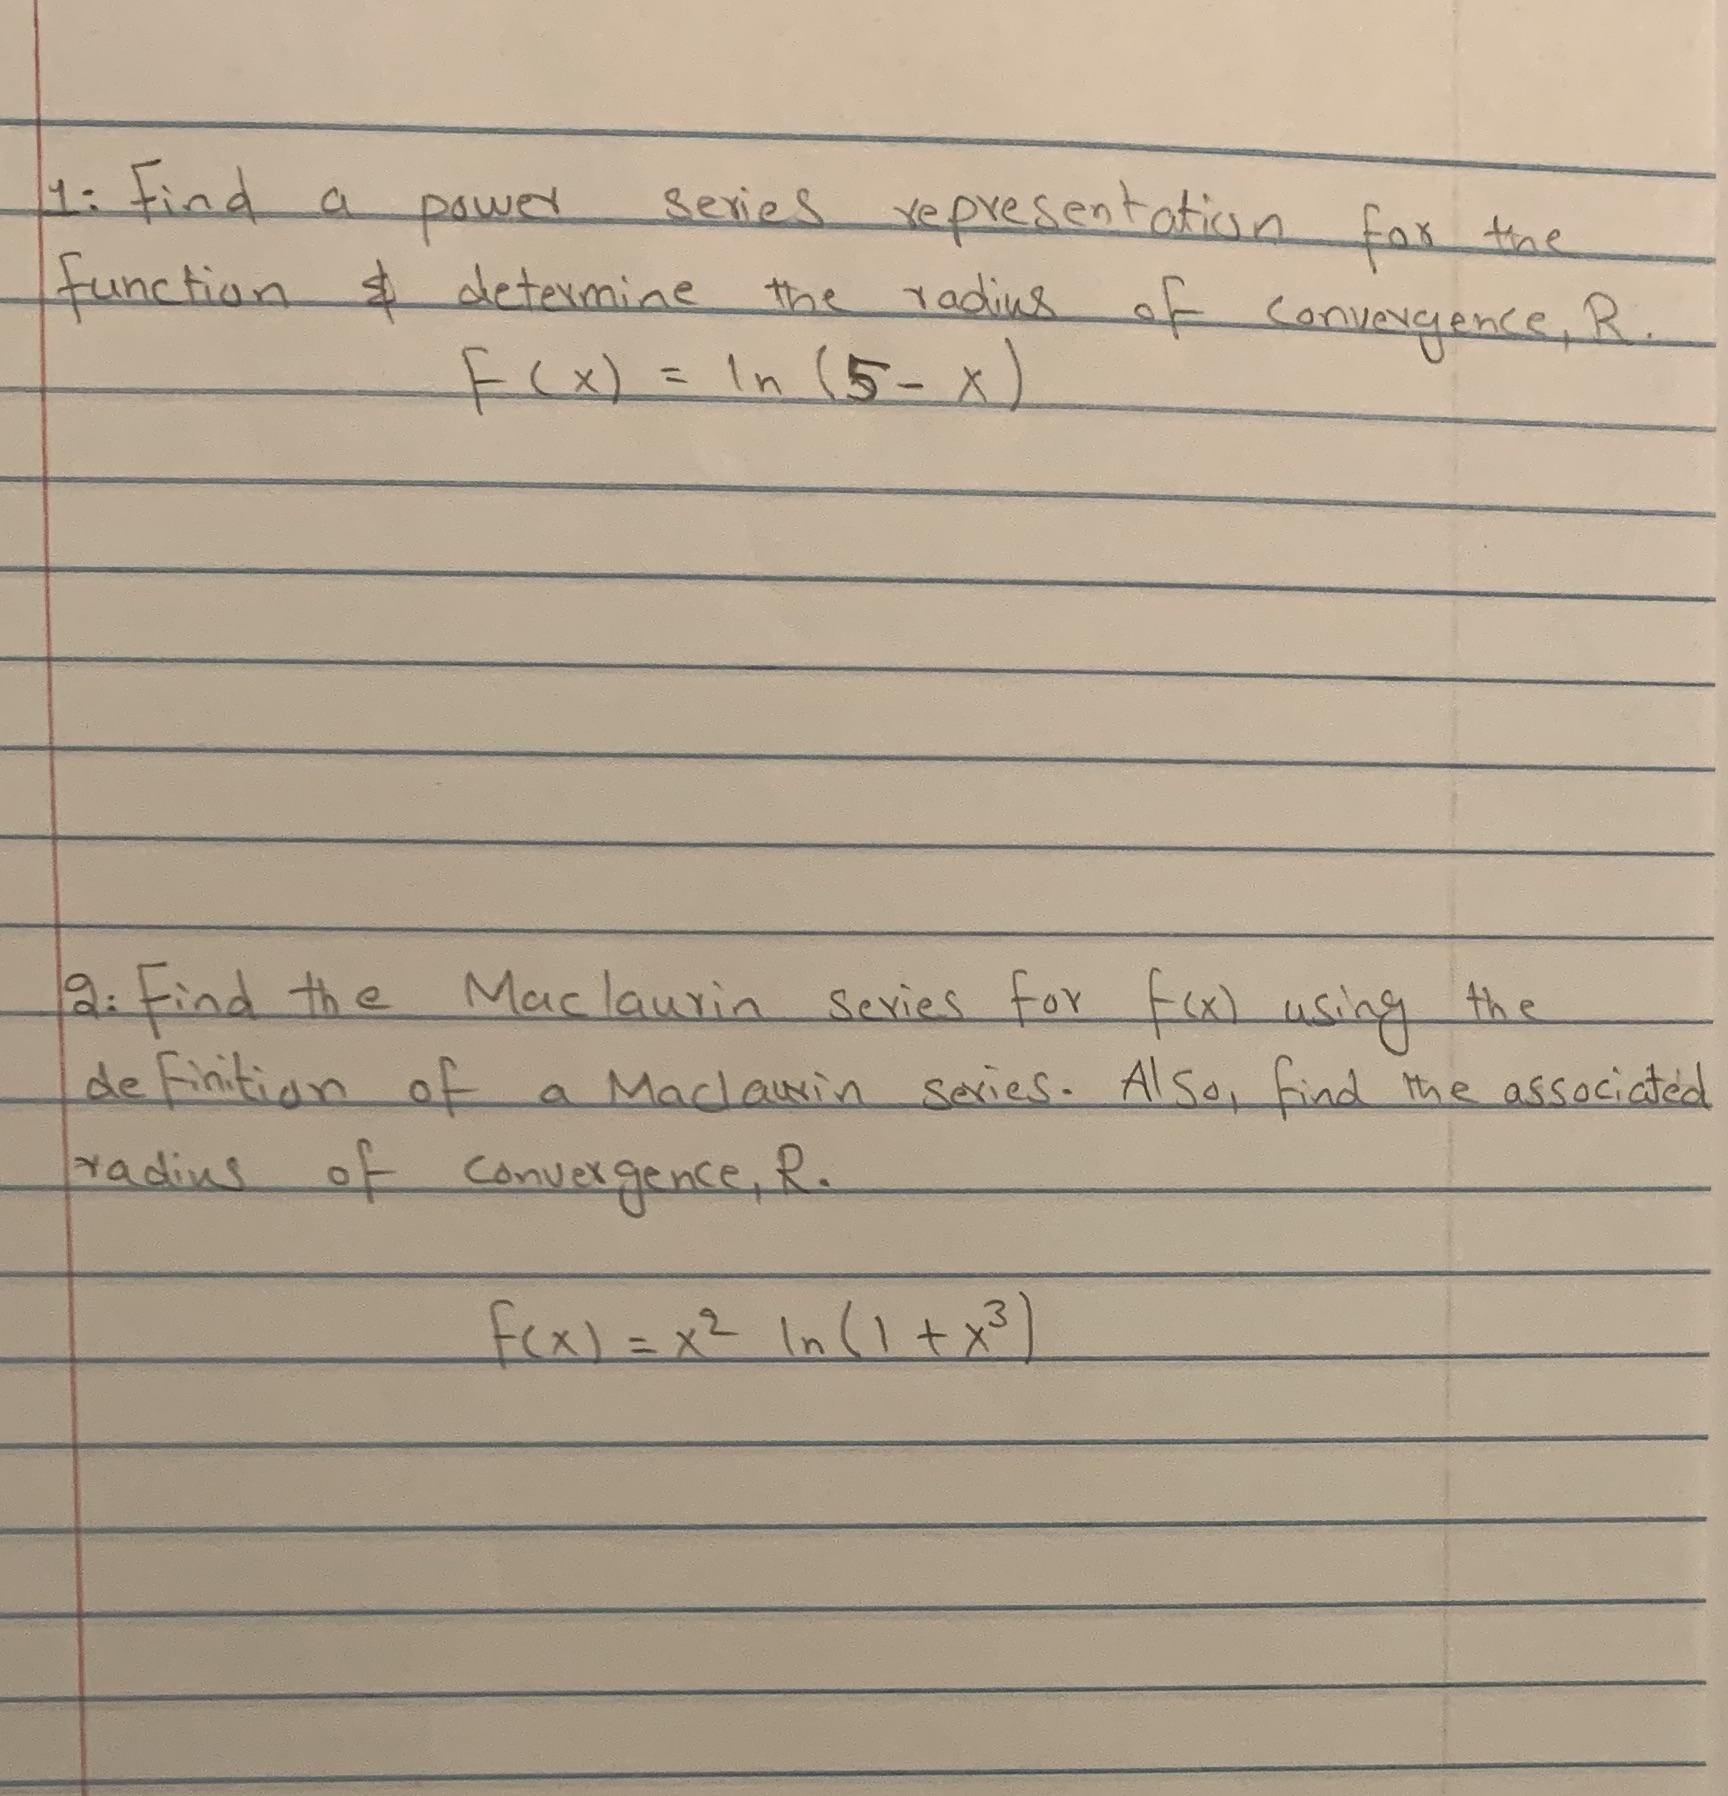 1: Find a power series representation for the
function & determine the radius of convergence, R.
F(x) = ln (5-x)
2: Find the Maclaurin series for f(x) using the
definition of a Maclaurin series. Also, find the associated
radius of convergence, R.
f(x) = x² ln(1+x³)